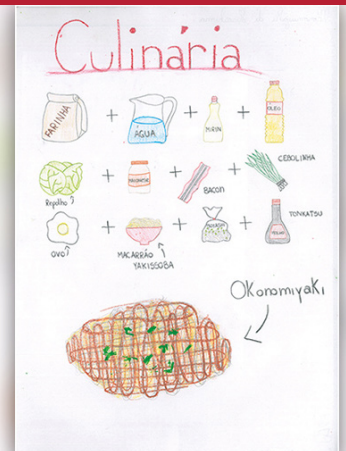 Culinária
FARINHA + ÁGUA + MIRIN + ÓLEO
Repolho + + BACON + CEBOLINHA
OVO + MACARRÃO YAKISSOBA + + TONKATSU
Okonomiyaki